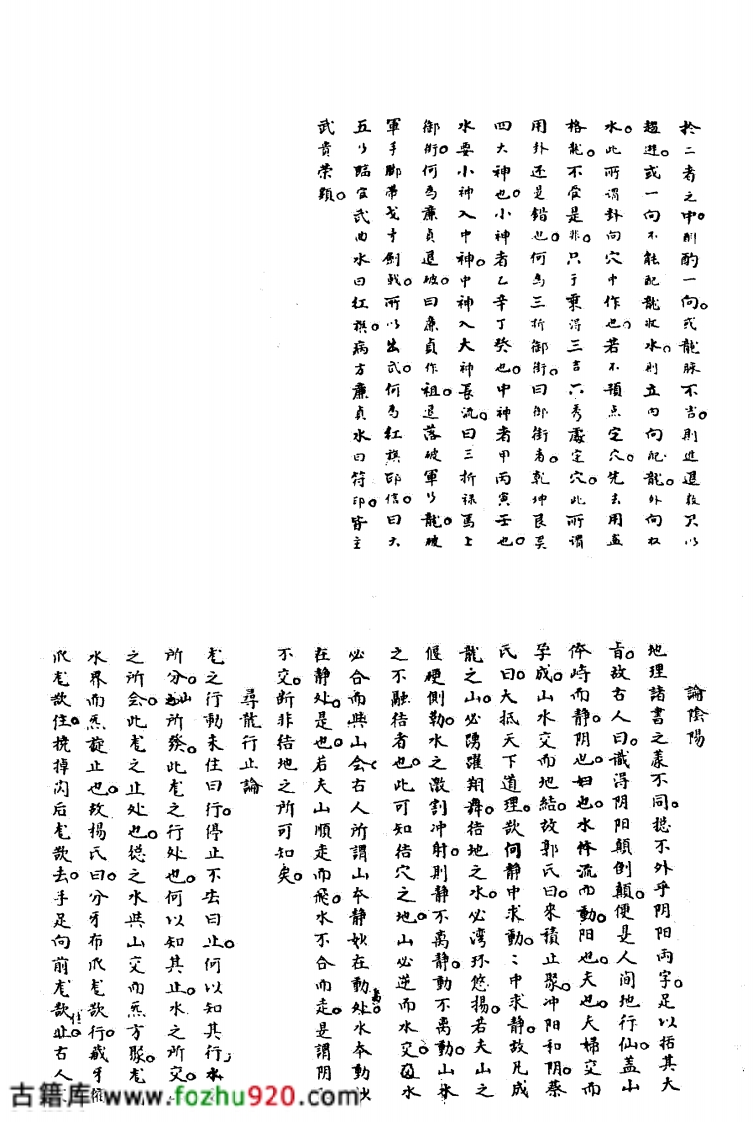 於二者之中。斟酌一向。或龍脉不吉。則進退数尺以
趨避。或一向不能配龍收水。則立内向配龍。外向收
水。此所谓卦向穴中作也。若不預点定穴。先去用盖
格龍。不受是非。只于乘得三吉六秀處定穴。此所谓
用卦还是错也。何为三折御街。曰御街者。乾坤艮巽
四大神也。小神者乙辛丁癸也。中神者甲丙寅壬也。
水要小神入中神。中神入大神長流。曰三折禄馬上
御街。何为廉貞退破。曰廉貞作祖。退落破軍以龍。破
軍手脚带戈矛劍戟。所以出武。何为红旗印信。曰大
五以臨官武曲水曰红旗。病方廉貞水曰符印。皆主
武貴荣顯。
論陰陽
地理諸書之義不同。总不外乎阴阳两字。足以括其大
旨。故古人曰。識得阴阳顛倒顛。便是人间地行仙。盖山
体峙而静。阴也。妇也。水体流而動。阳也。夫也。夫婦交而
孕成。山水交而地結。故郭氏曰。來積止聚。冲阳和阴。蔡
氏曰。大抵天下道理。欲向静中求動。動中求静。故凡成
龍之山。必踴躍翔舞。结地之水。必湾环悠揚。若夫山之
偃硬側勒。水之激割冲射。則静不离静。動不离動。山水
之不融结者也。此可知结穴之地。山必逆而水交。水
必合而與山会。古人所謂山本静欲在動处。水本動欲
在静处。是也。若夫山順走而飛。水不合而走。是謂阴
不交。断非结地之所可知矣。
尋龍行止論
龙之行動未住曰行。停止不去曰止。何以知其行。水
所分。山所發。此龙之行处也。何以知其止。水之所交。
之所会。此龙之止处也。总之水與山交而炁方聚。龙
水界而炁旋止也。故楊氏曰。分牙布爪龙欲行。藏牙縮
爪龙欲住。挠掉向后龙欲去。手足向前龙欲住。古人
古籍库 www.fozhu920.com